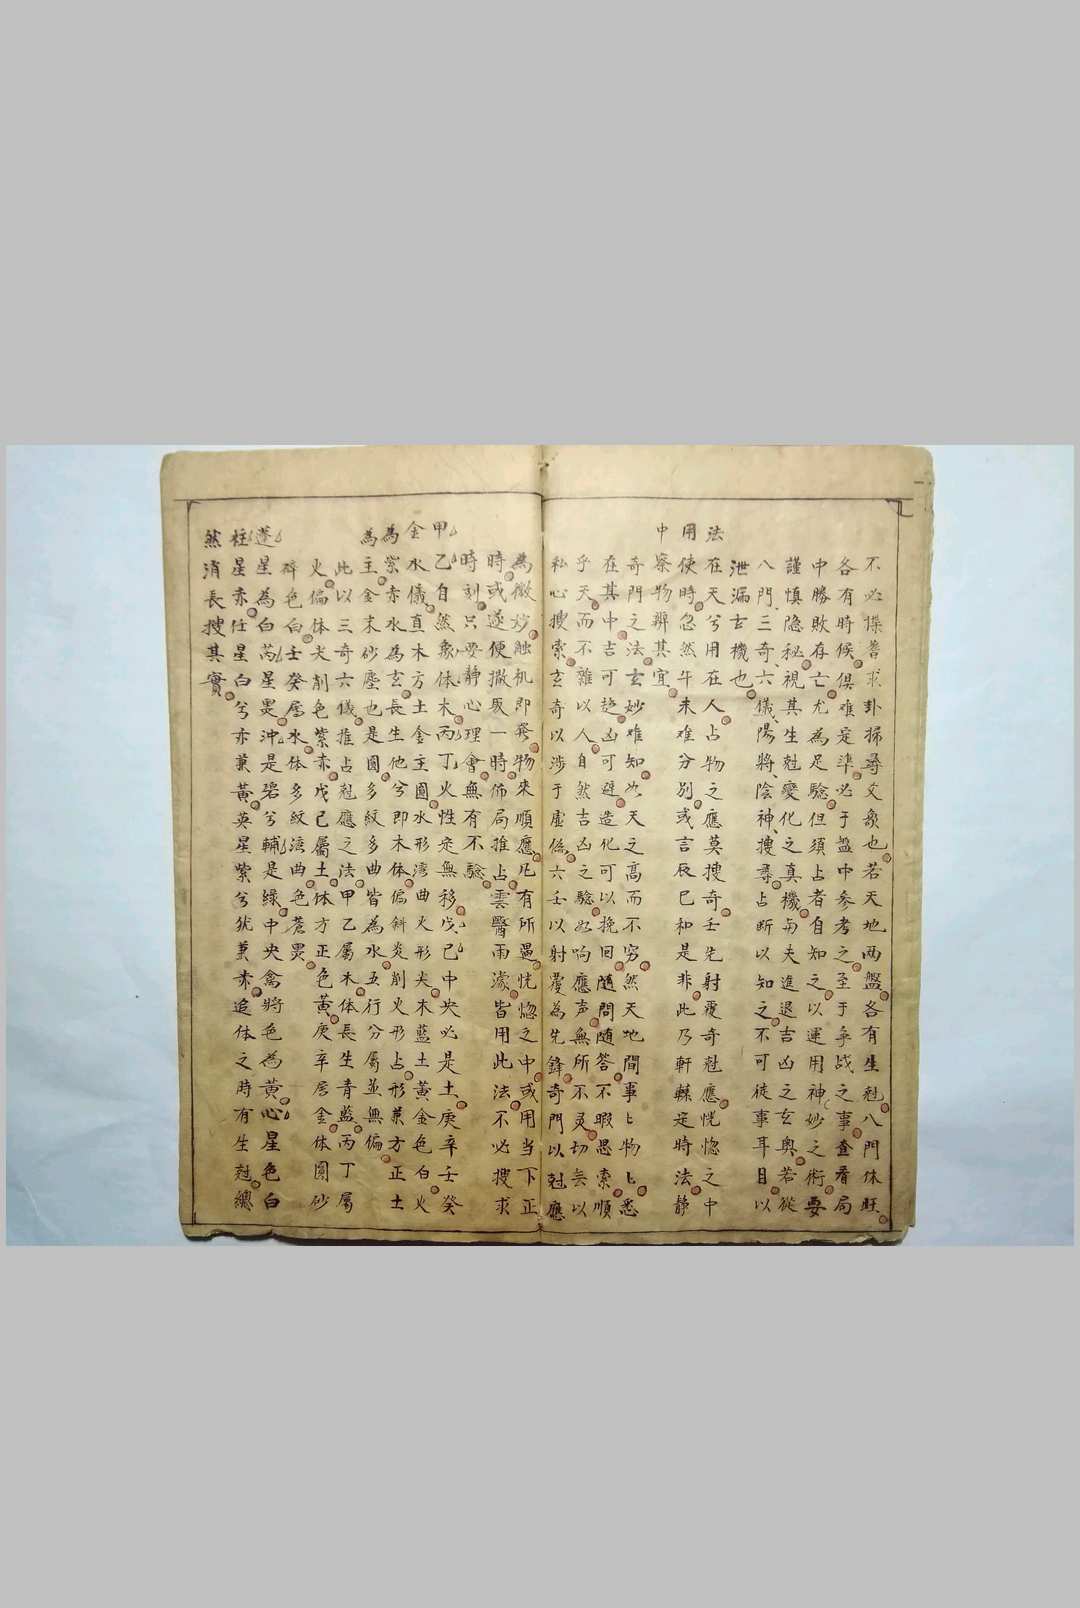 不必揲蓍求卦掃尋爻象也若天地两盤各有生尅八門休旺
各有時候俱难定準必于盤中参考之至于爭战之事查看局
中勝敗存亡尤為足驗但須占者自知之以運用神妙之術要
謹慎隐秘視其生尅變化之真機与夫進退吉凶之玄奥若從
八門三奇六儀陽將陰神搜尋占断以知之不可徒事耳目以
泄漏玄機也
法在天兮用在人占物之應莫搜奇壬先射覆奇尅應恍惚之中
用使時忽然牛未难分別或言辰巳和是非此乃軒轅定時法静
中察物辨其宜
奇門之法玄妙难知如天之高而不穷然天地間事〻物〻悉
在其中吉可趋凶可避造化可以挽回随問随答不暇思索順
乎天而不雜以人自然吉凶之驗如响應声無所不灵切去以
私心搜索玄奇以涉于虚係六壬以射覆為先鋒奇門以尅應
為微妙触机即發物來順應凡有所遇恍惚之中或用当下正
時或遂便撒段一時佈局推占雲翳雨濛皆用此法不必搜求
時刻只要静心理會無有不驗
甲乙自然象体木丙丁火性定無移戊己中央必是土庚辛壬癸
金水儀直木方土金主圓水形湾曲火形尖木藍土黄金色白火
為紫赤水為玄長生他兮即木体偏斜炎削火形占形兼方正土
為主金末砂塵也是圓多紋多曲皆為水五行分屬並無偏
此以三奇六儀推占尅應之法甲乙屬木体長生青藍丙丁屬
火偏体尖削色紫赤戊己屬土体方正色黄庚辛居金体圓砂
碎色白壬癸属水体多紋湾曲色蒼黑
蓬星為白芮星黑冲是碧兮輔是緑中央禽將色為黄心星色白
柱星赤任星白兮亦兼黄英星紫兮犹兼赤追体之時有生尅總
然消長搜其實